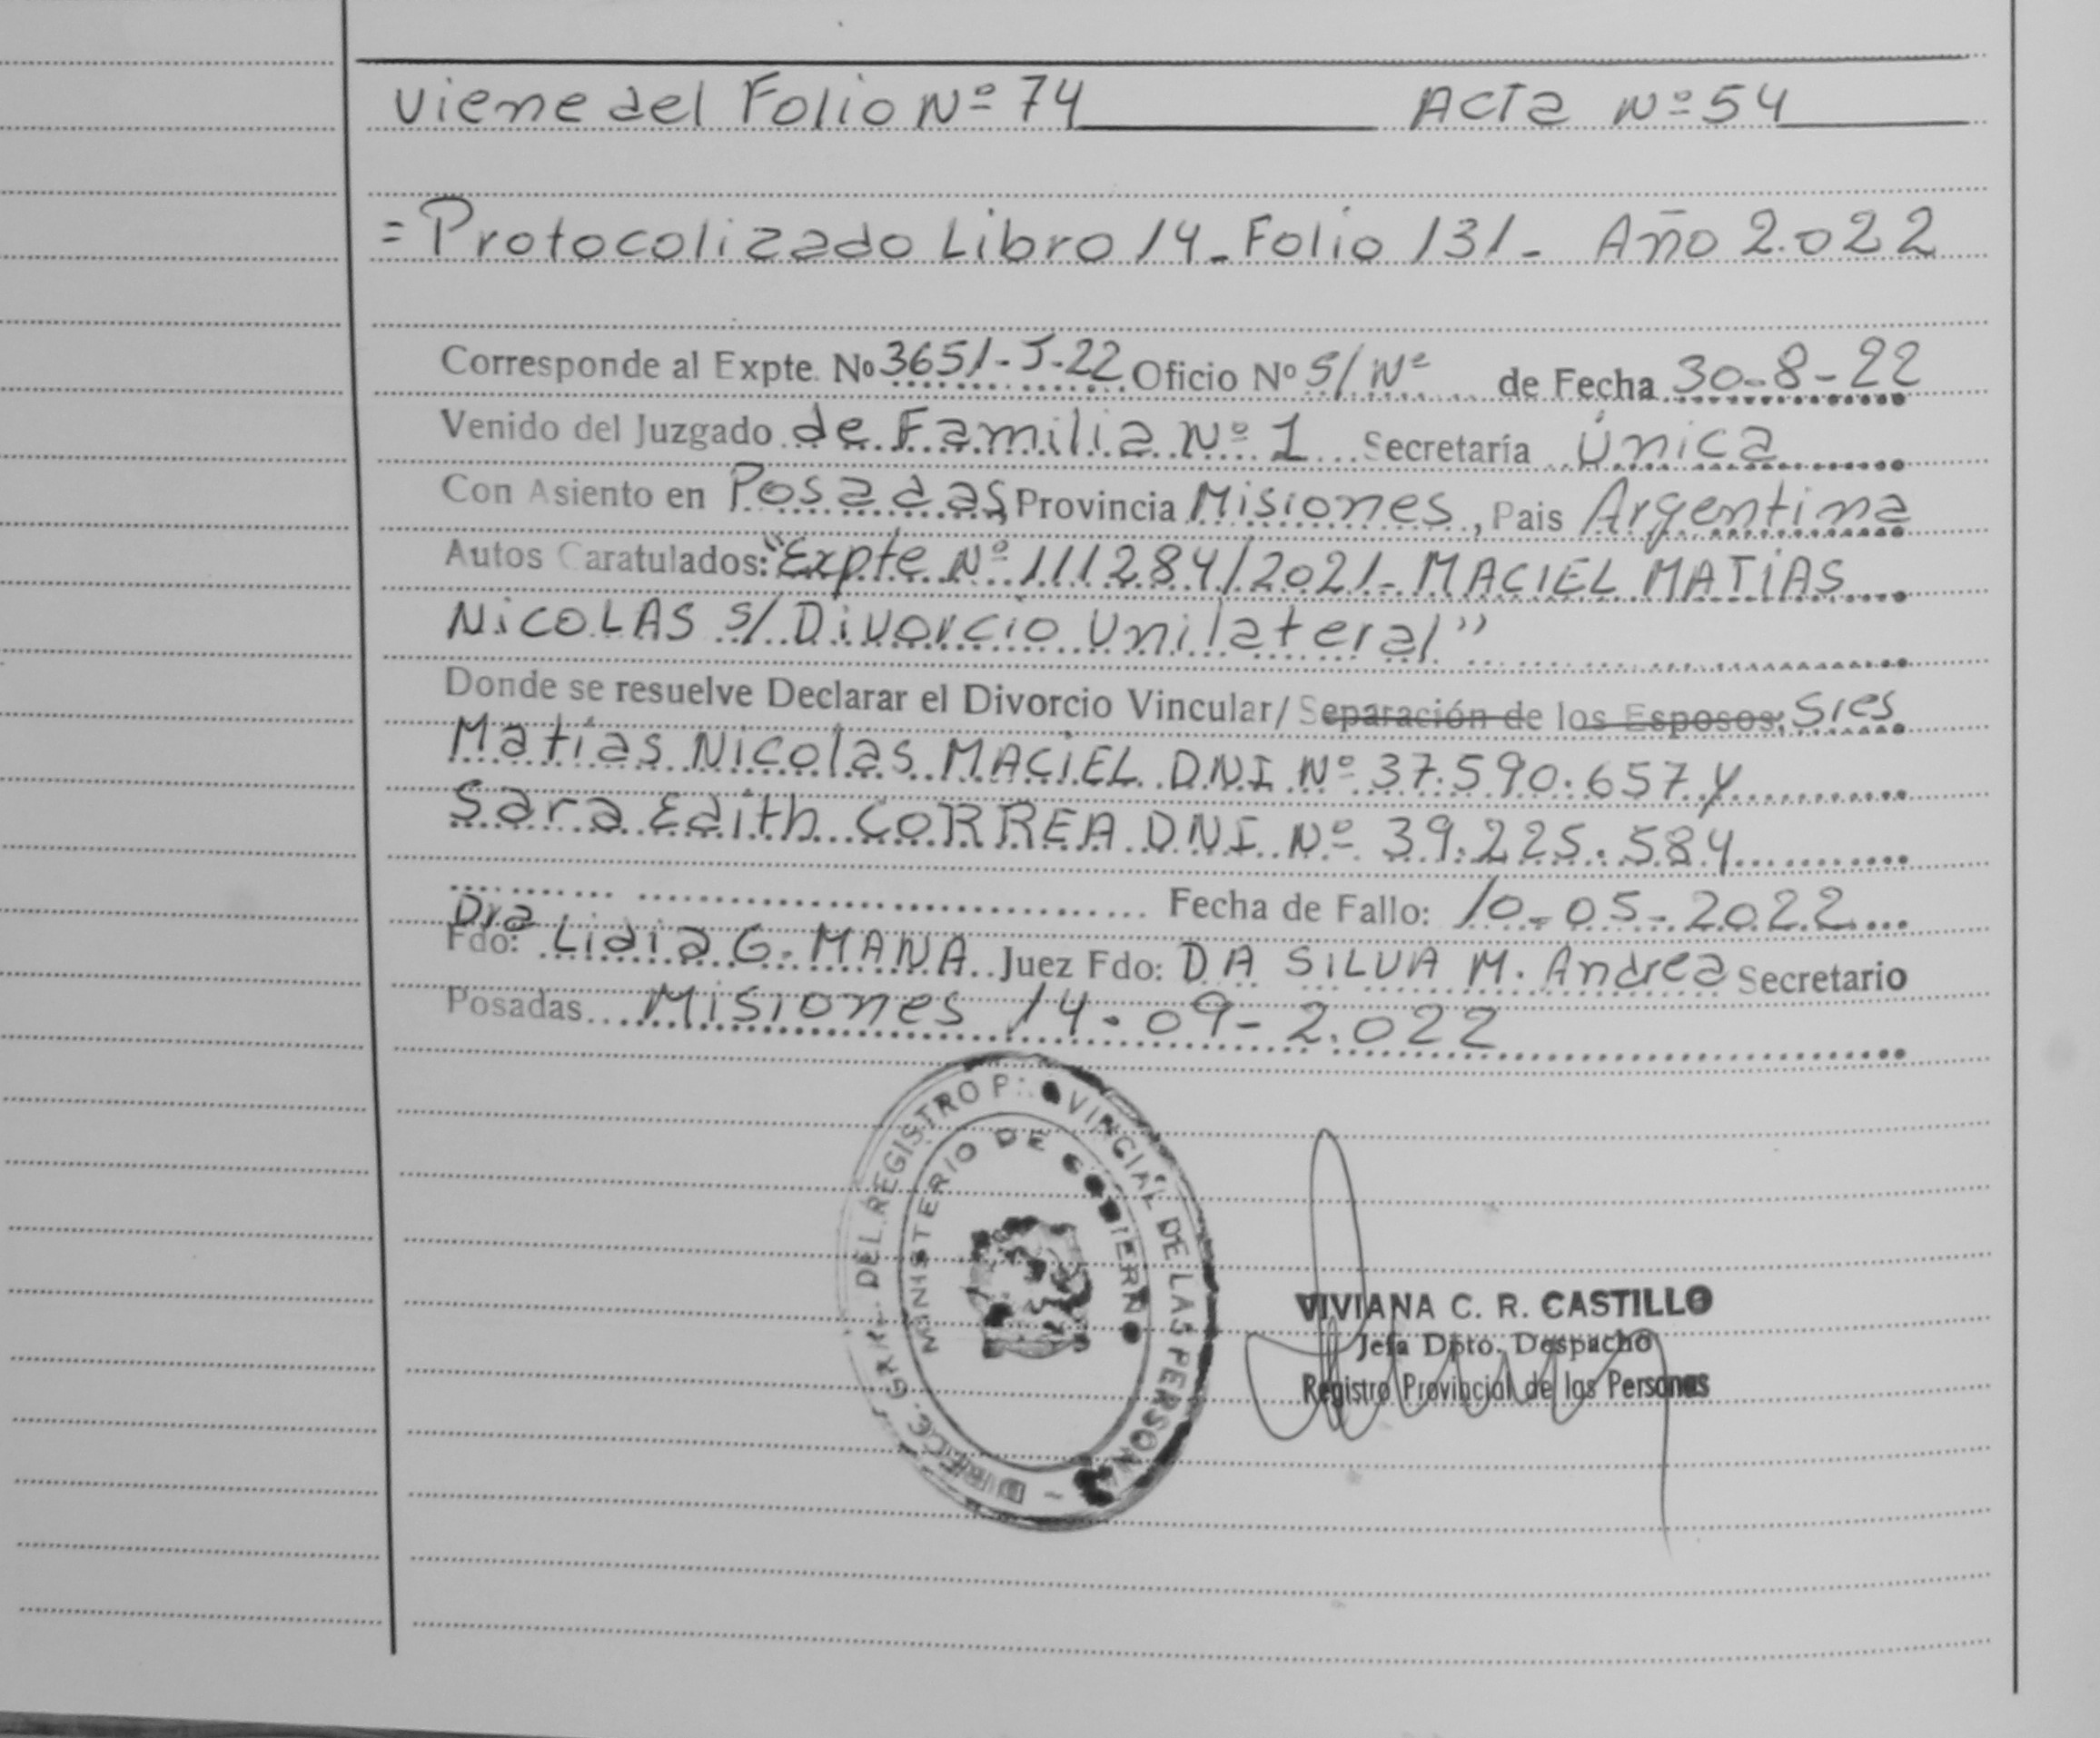 Viene del Folio Nº 74 Acta Nº 54
= Protocolizado Libro 14 - Folio 131 - Año 2.022
Corresponde al Expte. Nº 3651-J-22 Oficio Nº S/Nº de Fecha 30-8-22
Venido del Juzgado de Familia Nº 1 Secretaría Única
Con Asiento en Posadas, Provincia Misiones, Pais Argentina
Autos Caratulados: "Expte Nº 111284/2021 - MACIEL MATÍAS
NICOLAS s/ Divorcio Unilateral"
Donde se resuelve Declarar el Divorcio Vincular/ Separación de los Esposos; Sres
Matías Nicolas MACIEL DNI Nº 37.590.657 y
Sara Edith CORREA DNI Nº 39.225.584
Fecha de Fallo: 10-05-2022
Fdo: Dra Lidia G. MANA Juez Fdo: DA SILVA M. Andrea Secretario
Posadas Misiones 14-09-2.022
DIRECC. GRAL. DEL REGISTRO PROVINCIAL DE LAS PERSONAS -
MINISTERIO DE GOBIERNO
VIVIANA C. R. CASTILLO
Jefa Dpto. Despacho
Registro Provincial de las Personas